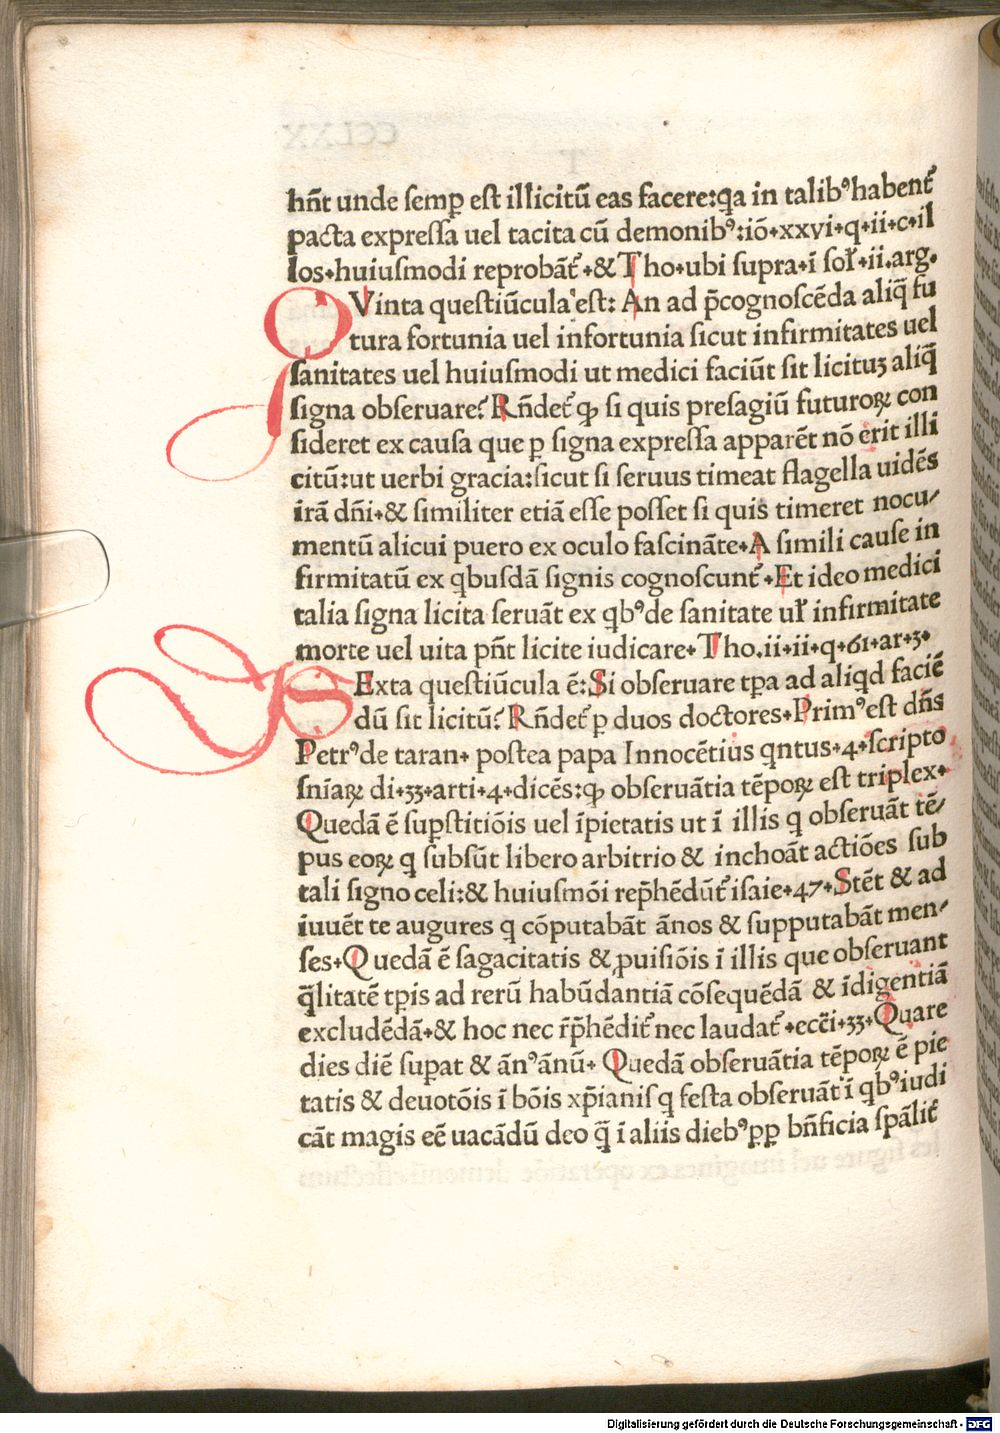 hn̄t unde semꝑ est illicitū eas facere:q̄a in talibꝰ habent᷑
pacta expressa uel tacita cū demonibꝰ:iō.xxvi.q.ii.c.il
los.huiusmodi reprobāt᷑.&Tho.ubi supra.ī soł.ii.arg.
QVinta questiūcula est: An ad p̄cognoscēda aliq̄ fu
tura fortunia uel infortunia sicut infirmitates uel
sanitates uel huiusmodi ut medici faciūt sit licituꝫ aliq̄
signa obseruare? Rn̄det᷑ ꝙ si quis presagiū futuroꝝ con
sideret ex causa que ꝑ signa expressa apparēt nō erit illi
citū:ut uerbi gracia:sicut si seruus timeat flagella uidēs
irā dn̄i.& similiter etiā esse posset si quis timeret nocu/
mentū alicui puero ex oculo fascināte.A simili cause in
firmitatū ex qbusdā signis cognoscunt᷑.Et ideo medici
talia signa licita seruāt ex qbꝰ de sanitate uł infirmitate
morte uel uita pn̄t licite iudicare.Tho.ii.ii.q.61.ar.3.
SExta questiūcula ē:Si obseruare tꝑa ad aliqd faciē
dū sit licitū? Rn̄det᷑ ꝑ duos doctores.Primꝰ est dn̄s
Petrꝰ de taran. postea papa Innocētius qntus.4.scripto
sniāꝝ di.33.arti.4.dicēs:ꝙ obseruātia tēpoꝝ est triplex.
Quedā ē suꝑstitiōis uel īpietatis ut ī illis q obseruāt tē/
pus eoꝝ q subsūt libero arbitrio & inchoāt actiōes sub
tali signo celi:& huiusmōi rep̄hēdūt᷑ isaie.47.Stēt & ad
iuuēt te augures q cōputabāt ānos & supputabāt men/
ses.Quedā ē sagacitatis & ꝓuisiōis ī illis que obseruant
q̄litatē tꝑis ad rerū habūdantiā cōsequēdā & īdigentiā
excludēdā.& hoc nec rp̄hēdit᷑ nec laudat᷑.ecci̅.33.Quare
dies diē suꝑat & ānꝰ ānū. Quedā obseruātia tēpoꝝ ē pie
tatis & deuotōis ī bōis xp̄ianis q festa obseruāt ī qbꝰ iudi
cāt magis eē uacādū deo q̄ ī aliis diebꝰ ꝑp bn̄ficia spālit᷑
Digitalisierung gefördert durch die Deutsche Forschungsgemeinschaft - DFG